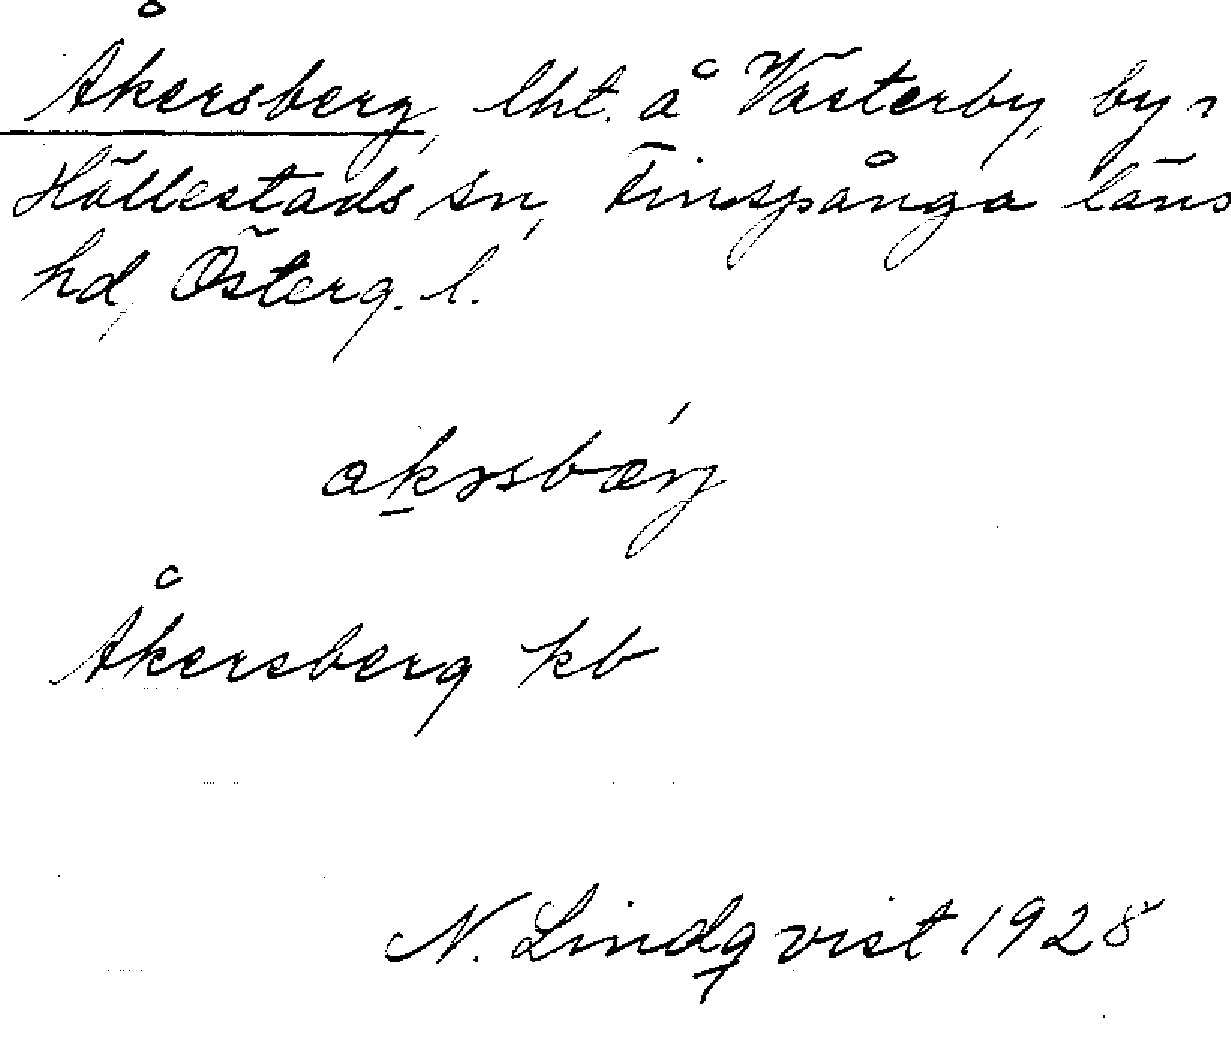 Åkersberg, lht. å Västerby, by i
Hällestads sn, Finspånga läns
hd, Österg. l.
Åkersberg kb
N. Lindqvist 1928